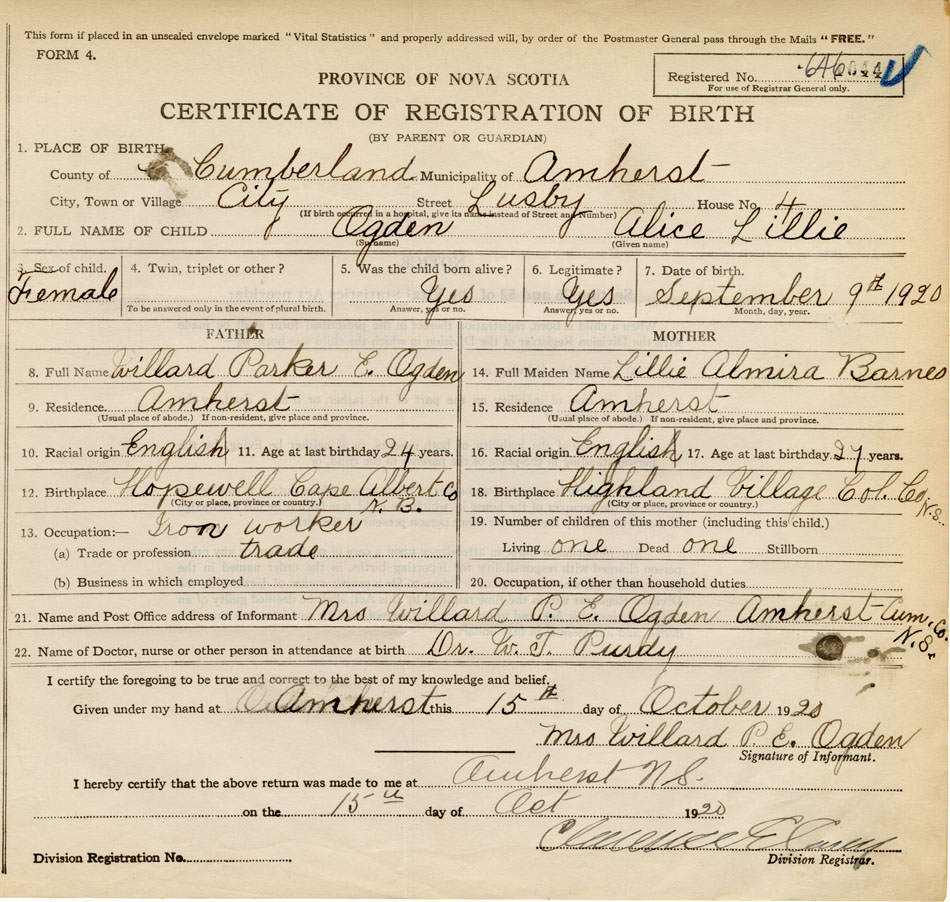 This form if placed in an unsealed envelope marked "Vital Statistics" and properly addressed will, by order of the Postmaster General pass through the Mails "FREE."
FORM 4.
PROVINCE OF NOVA SCOTIA
Registered No.
For use of Registrar General only.
CERTIFICATE OF REGISTRATION OF BIRTH
(BY PARENT OR GUARDIAN)
1. PLACE OF BIRTH
County of Cumberland Municipality of Amherst
City, Town or Village City Street Lusby House No. 4
(If birth occurred in a hospital, give its name instead of Street and Number)
2. FULL NAME OF CHILD Ogden Alice Lillie
(Surname) (Given name)
3. Sex of child. 4. Twin, triplet or other? 5. Was the child born alive? 6. Legitimate? 7. Date of birth.
Female Yes Yes September 9th 1920
To be answered only in the event of plural birth. Answer, yes or no. Answer, yes or no. Month, day, year.
FATHER MOTHER
8. Full Name Willard Parker E. Ogden 14. Full Maiden Name Lillie Almira Barnes
9. Residence. Amherst 15. Residence Amherst
(Usual place of abode.) If non-resident, give place and province. (Usual place of abode.) If non-resident, give place and province.
10. Racial origin English 11. Age at last birthday 24 years. 16. Racial origin English 17. Age at last birthday 27 years.
12. Birthplace Hopewell Cape Albert Co N.B. 18. Birthplace Highland Village Col. Co. N.S.
(City or place, country or province) (City or place, country or province)
13. Occupation:— Iron worker 19. Number of children of this mother (including this child.)
(a) Trade or profession trade Living one Dead one Stillborn
(b) Business in which employed 20. Occupation, if other than household duties
21. Name and Post Office address of Informant Mrs Willard P. E. Ogden Amherst Cum. Co. N.S.
22. Name of Doctor, nurse or other person in attendance at birth Dr. W. T. Purdy
I certify the foregoing to be true and correct to the best of my knowledge and belief.
Given under my hand at Amherst this 15th day of October 1920
Mrs Willard P. E. Ogden
Signature of Informant.
I hereby certify that the above return was made to me at Amherst N.S.
on the 15th day of Oct 1920
Clarence
Division Registration No. Division Registrar.